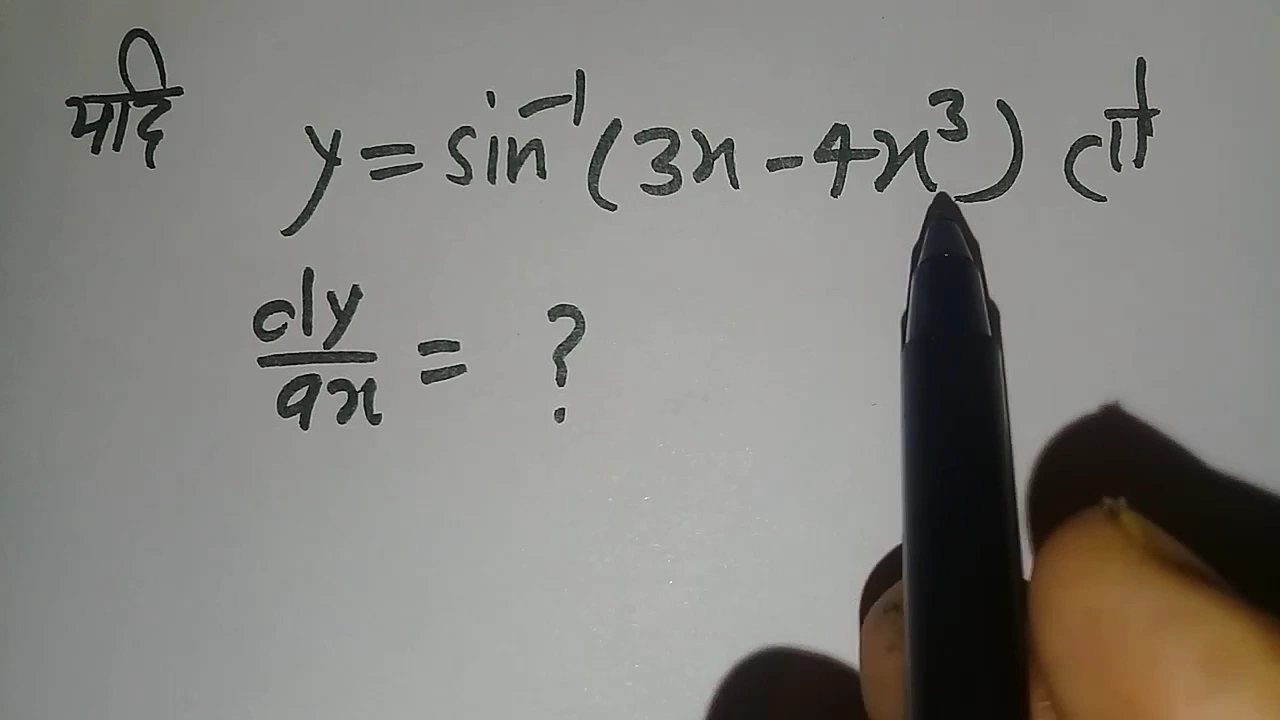 यदि y = sin⁻¹(3x - 4x³) तो
dy/dx = ?